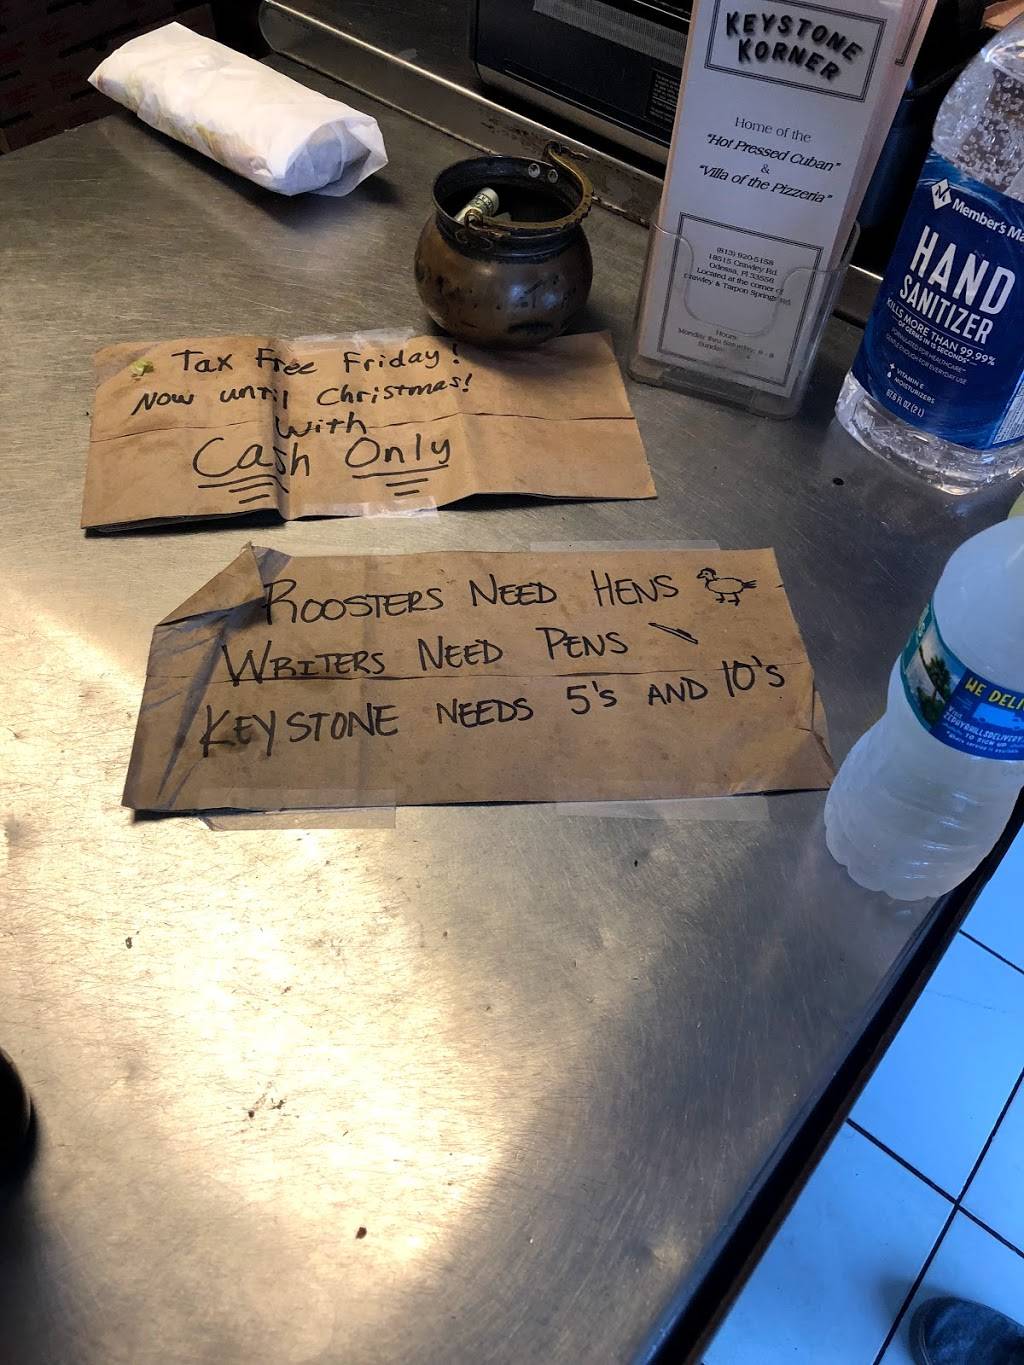 KEYSTONE
KORNER
Home of the
"Hot Pressed Cuban"
&
"Villa of the Pizzeria"
(813) 920-5158
18515 Crawley Rd.
Odessa, Fl 33556
Located at the corner of
Crawley & Tarpon Springs Rd.
Hours
Monday thru Saturday,
Sunday
Member's Ma
HAND
SANITIZER
KILLS MORE THAN 99.99%
OF GERMS IN 15 SECONDS*
VITAMIN E
MOISTURIZERS
67.6 FL OZ (2 L)
Tax Free Friday!
Now until Christmas!
with
Cash Only
ROOSTERS NEED HENS
WRITERS NEED PENS
KEYSTONE NEEDS 5's AND 10's
WE DELI
TO SIGN UP